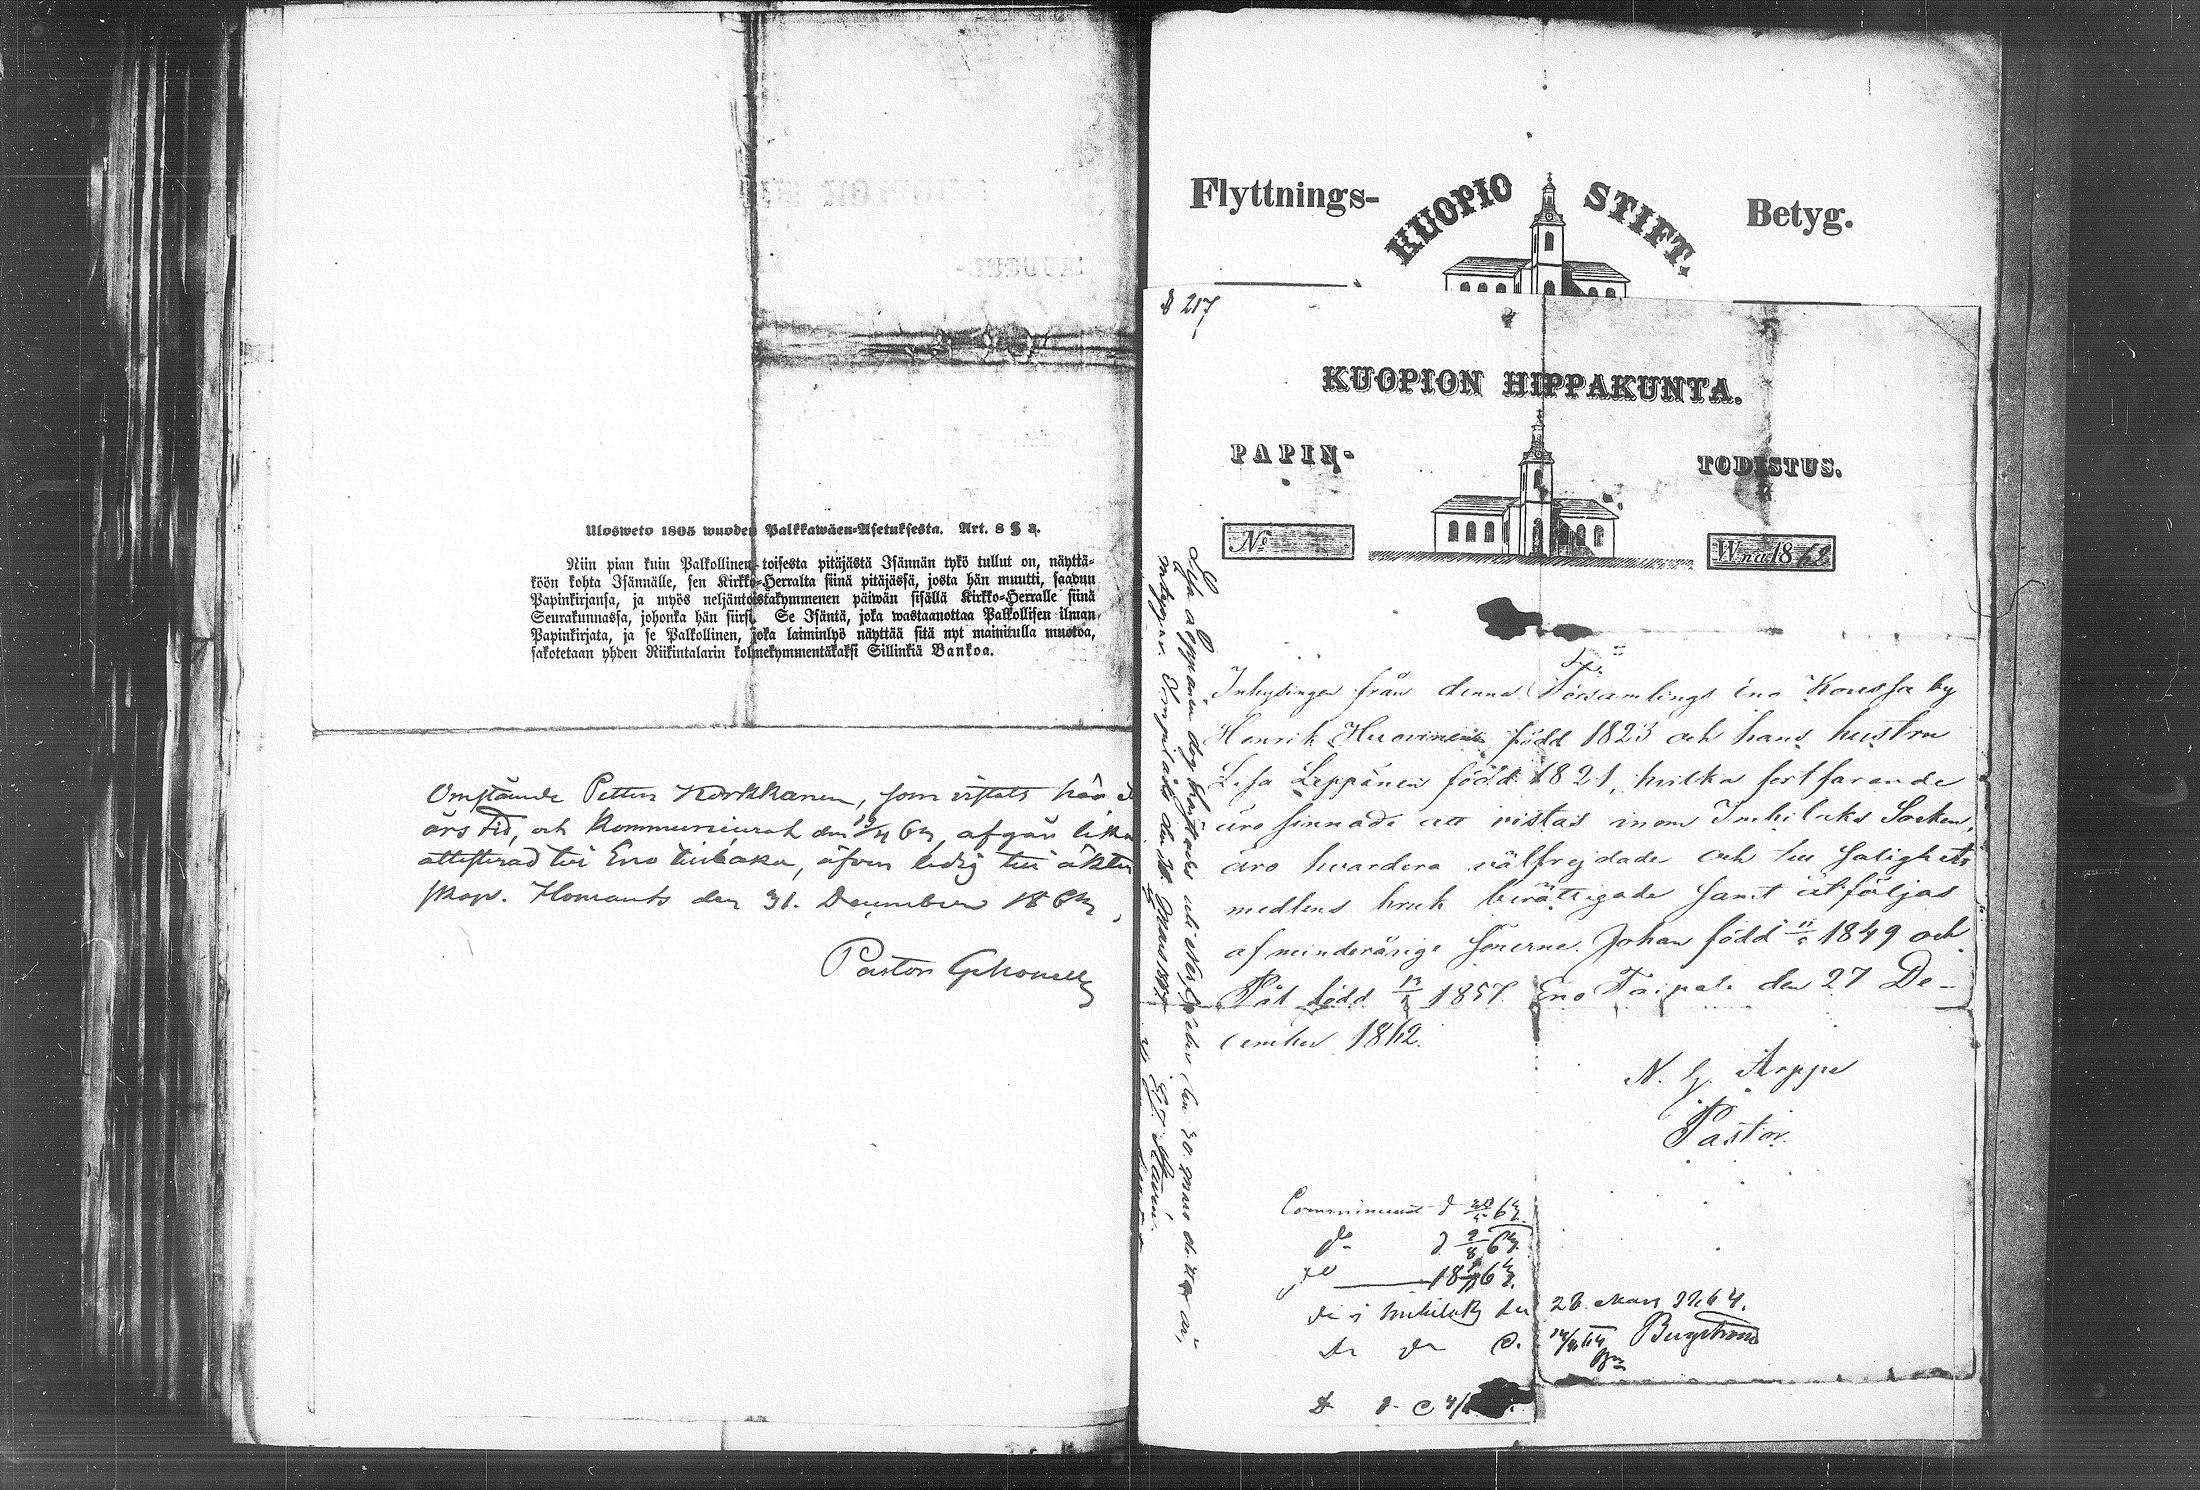 Ulosweto 1805 wuoden Palkkawäen-Asetuksesta. Art. 8 § 3.
Niin pian kuin Palkollinen toisesta pitäjästä Isännän tykö tullut on, näyttä-
köön kohta Isännälle, sen Kirkko-Herralta siinä pitäjässä, josta hän muutti, saadun
Papinkirjansa, ja myös neljäntoistakymmenen päiwän sisällä Kirkko-Herralle siinä
Seurakunnassa, johonka hän siirsi. Se Isäntä, joka wastaanottaa Palkollisen ilman
Papinkirjata, ja se Palkollinen, joka laiminlyö näyttää sitä nyt mainitulla muotoa,
sakotetaan yhden Riikintalarin kolmekymmentäkaksi Sillinkiä Bankoa.
Omstående Petter Korkkanen, som vistats här
års tid, och kommunicerat den afgår
attesterad till Eno tillbaka, äfven ledig till äkten
skap. Ilomants den 31. December
Pastor
Flyttnings- KUOPIO STIFT. Betyg.
217
KUOPION HIPPAKUNTA.
PAPIN- TODISTUS.
No Wna 1862
Inhysingen från denna Församlings Eno by
Henrik Huovinen född 1823 och hans hustru
Lisa Leppänen född 1821, hvilka fortfarande
äro sinnade att vistas inom Imbilaks Socken,
äro hvardera välfrejdade och till salighets
medlens bruk berättigade samt åtföljas
af minderårige sönerne Johan född 1849 och
Pål född 1857. Eno Taipale den 27 De-
cember 1862.
N. G. Arppe
Pastor.
Lisa Leppänen dog den 30 Mars
Impilaks den Mars
Communicerat d
do d
do
do i Imbilaks den 28. Mars 1864.
do do d. Bergström